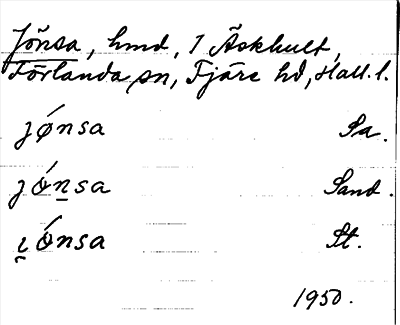 Jönsa, hmd, 1 Äskhult,
Förlanda sn, Fjäre hd, Hall. l.
jǿnsa Sa.
jǿn̲sa Sand.
i̯ǿnsa St.
1950.